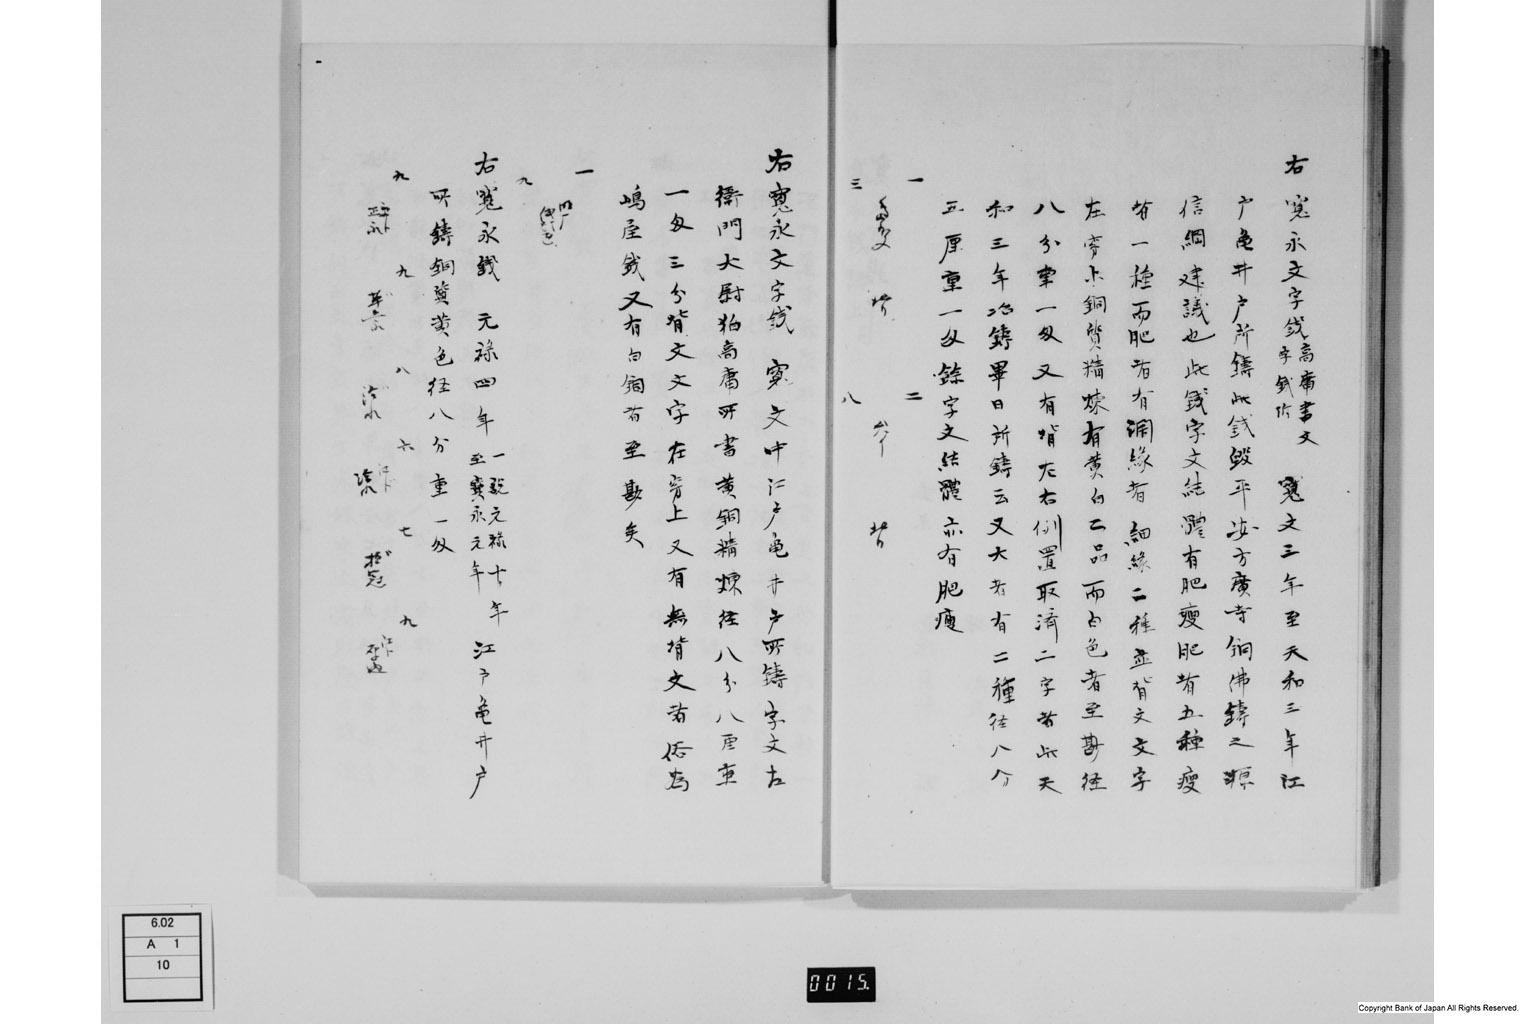 右寛永文字銭 高庸書文字銭所 寛文三年至天和三年江
戸亀井戸所鋳此銭毀平安方廣寺銅佛鋳之源
信綱建議也此銭字文結體有肥瘦肥者五種瘦
者一種而肥者有濶縁者細縁二種並背文文字
在旁上銅質精煉有黄白二品而白色者至尠径
八分重一匁又有背左右倒置取済二字者此天
和三年冶鋳畢日所鋳云又大者有二種径八分
五厘重一匁餘字文結體亦有肥瘦
一 二
三 背 八 背
右寛永文字銭 寛文中江戸亀井戸所鋳字文左
衛門大尉狛高庸所書黄銅精煉径八分八厘重
一匁三分背文文字在旁上又有無背文者俗為
嶋屋銭又有白銅者至尠矣
一
九
右寛永銭 元禄四年 一説元禄十年至寳永元年 江戸亀井戸
所鋳銅質黄色径八分重一匁
九 九 八 六 七 九
6.02
A 1
10
0015.
Copyright Bank of Japan All Rights Reserved.